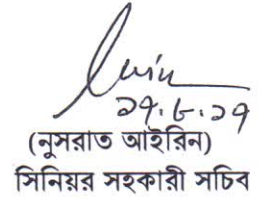 ২৭.৮.১৭
(নুসরাত আইরিন)
সিনিয়র সহকারী সচিব